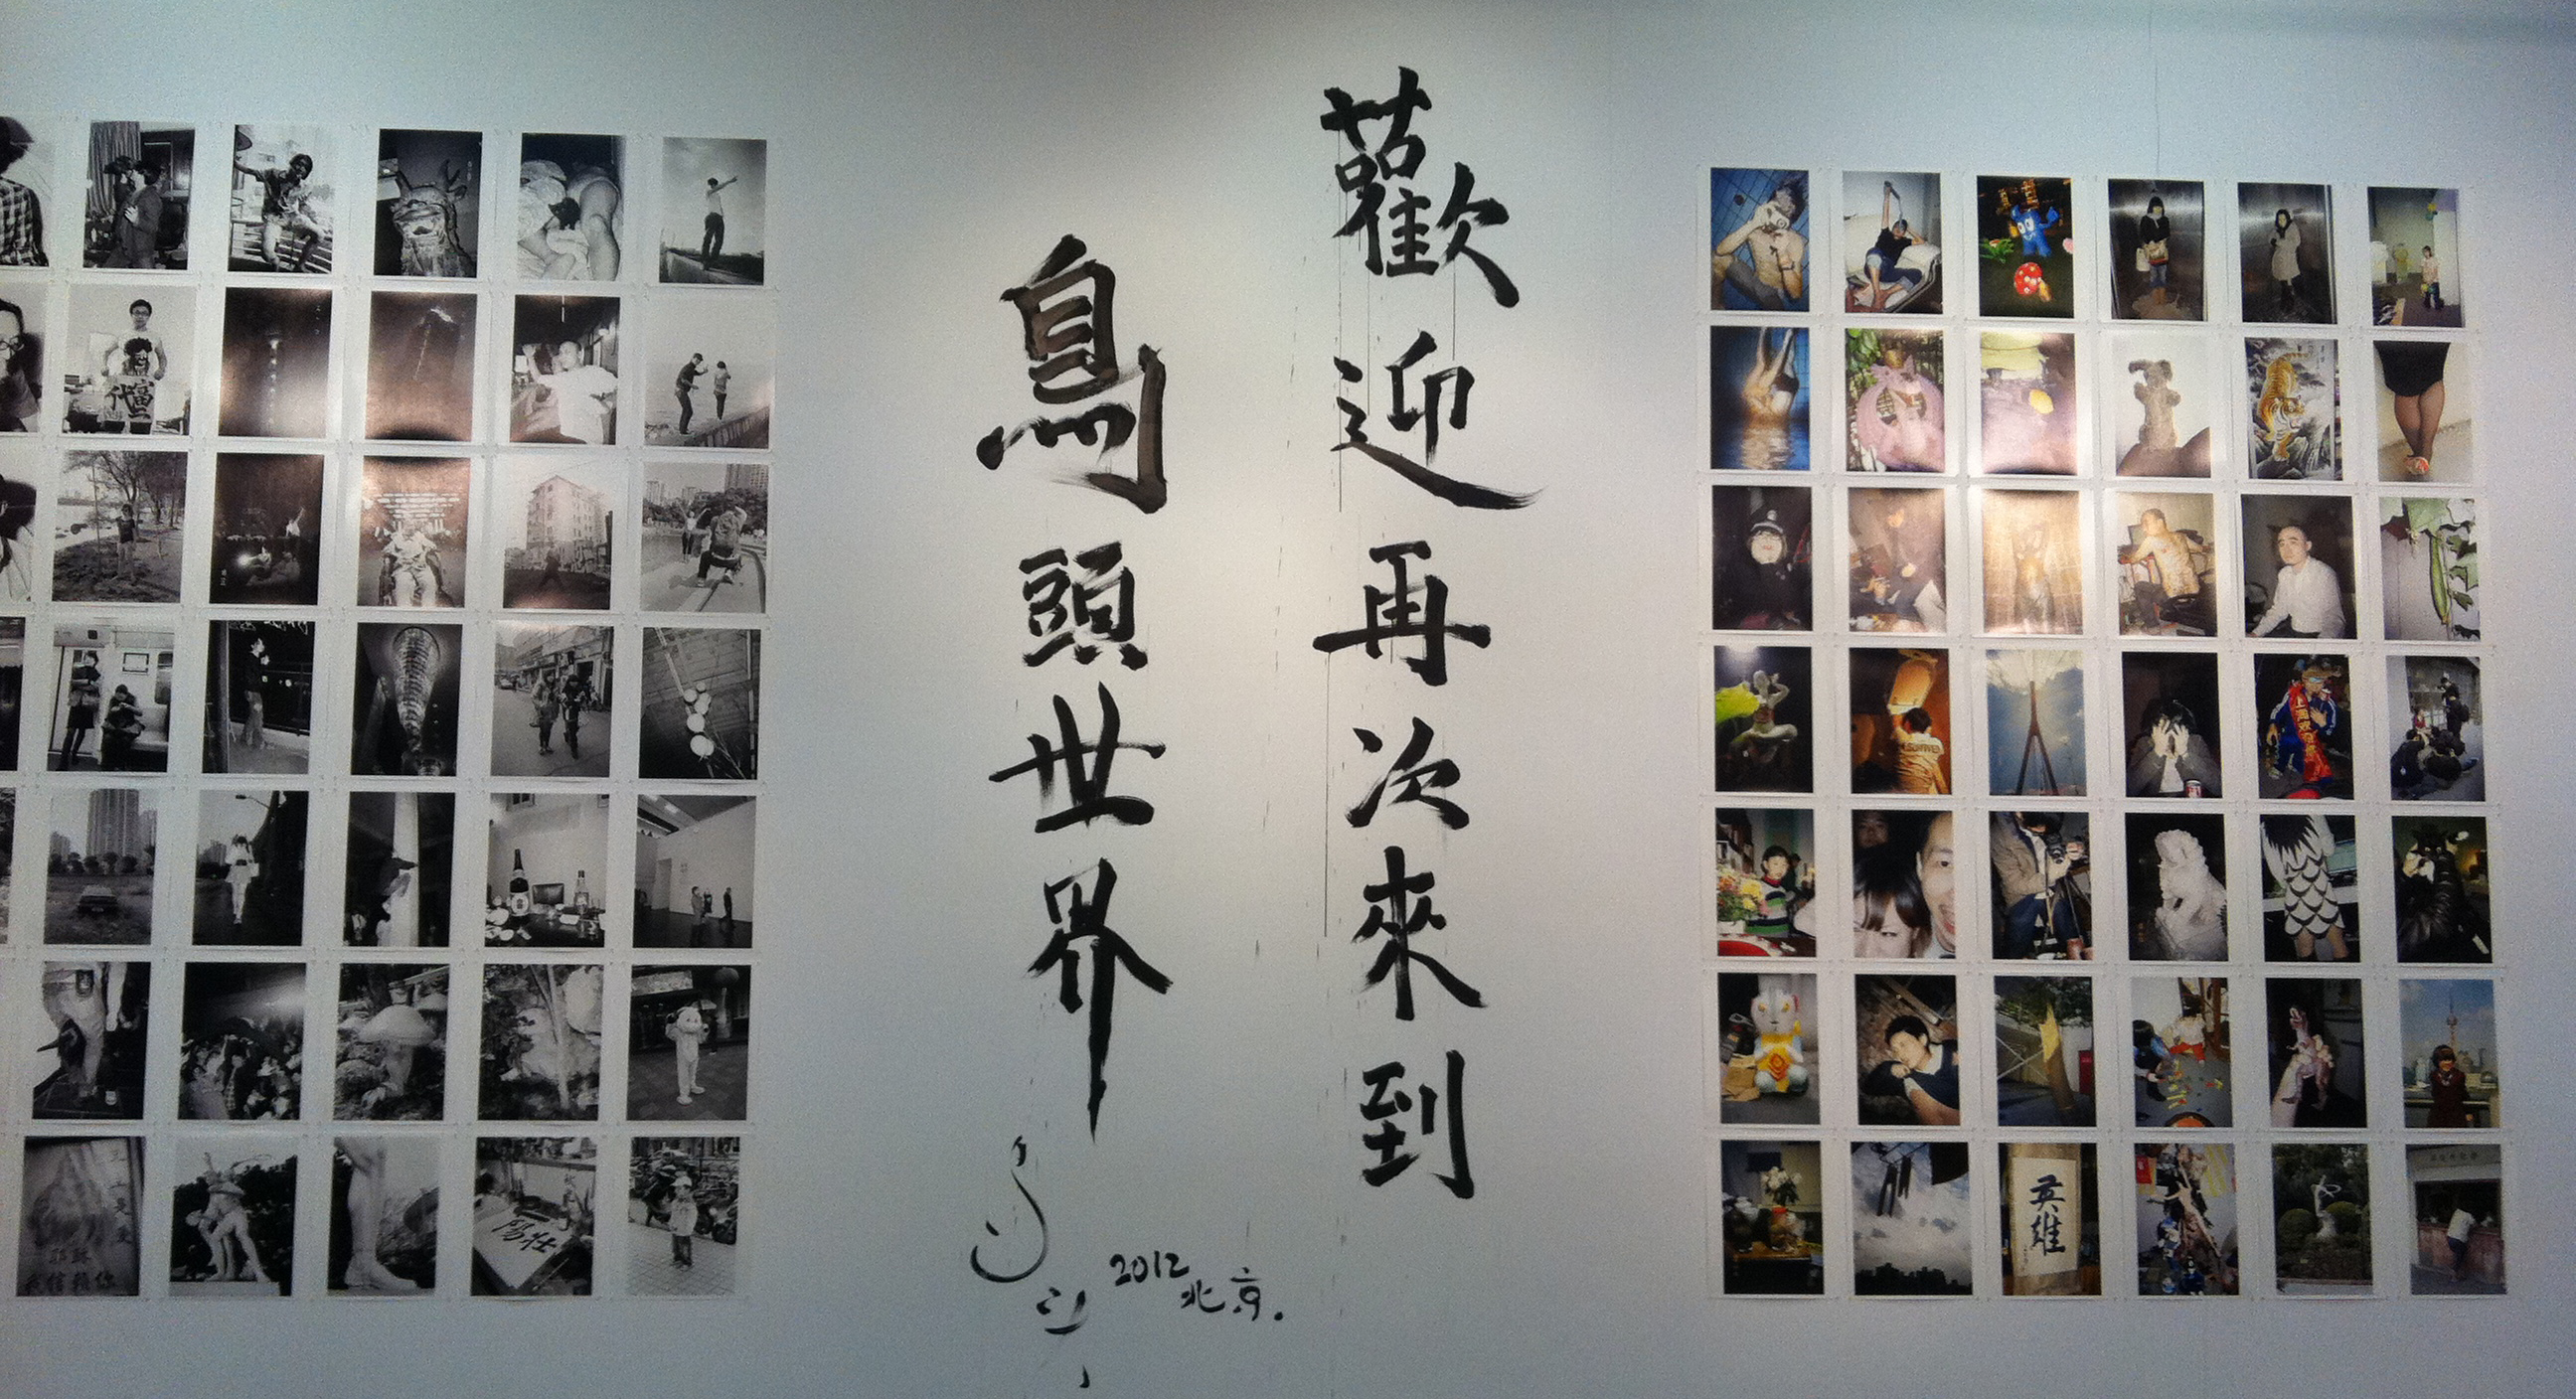 歡迎再次來到
鳥頭世界
2012
北京.
英雄
陽壯